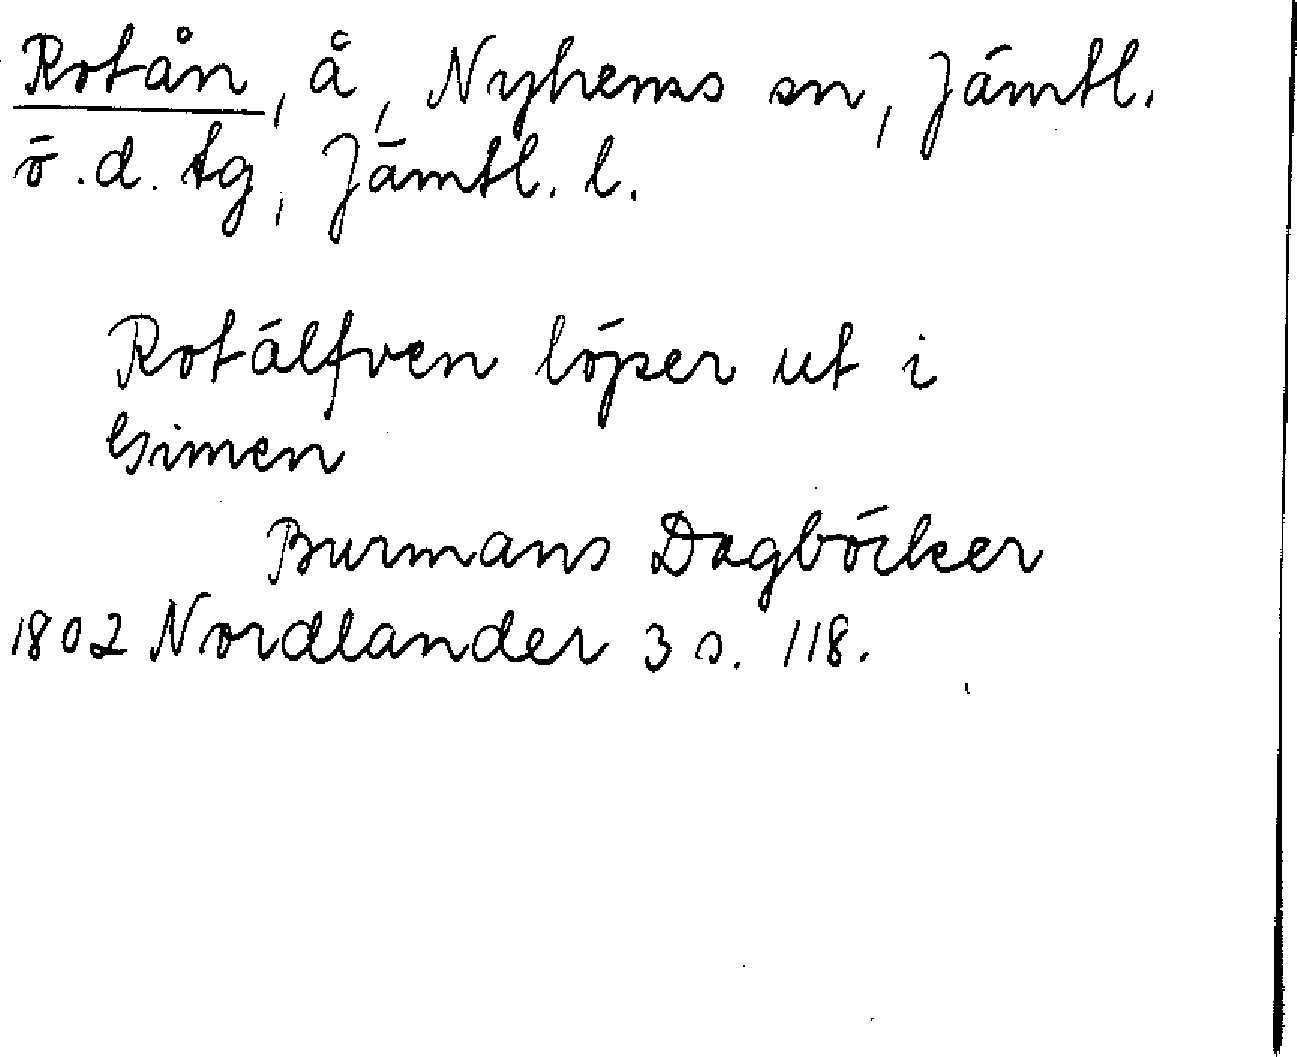 Rotån, å, Nyhems sn, Jämtl.
ö.d. tg, Jämtl. l.
Rotälfven löper ut i
Gimen
Burmans Dagböcker
1802 Nordlander 3 s. 118.